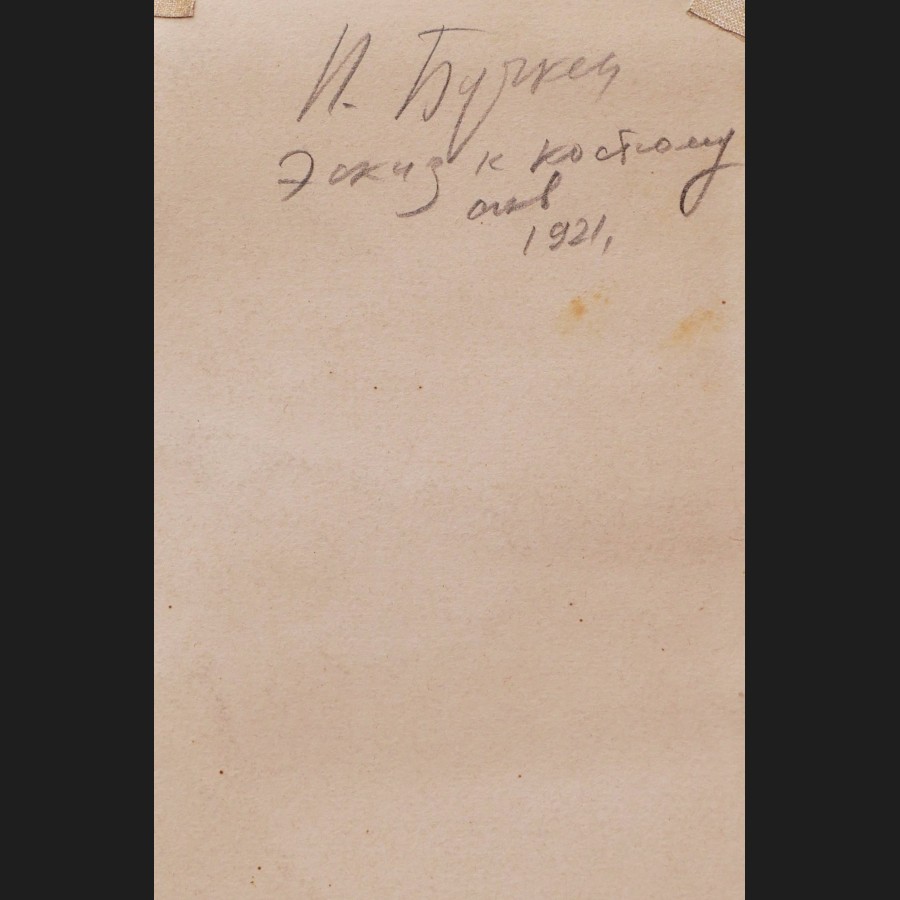 П. Бучкен
Эскиз к костюму
акв
1921,